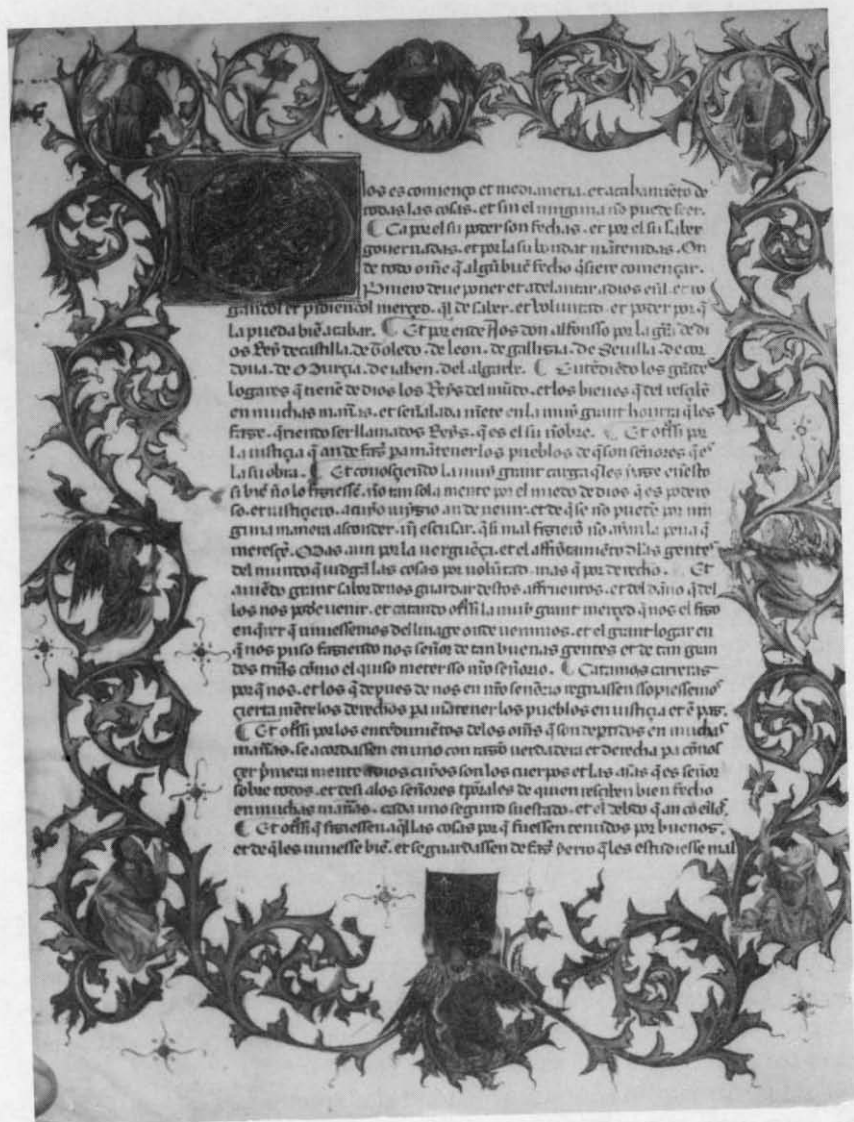 Dios es comienço et medianeria. et acabamiẽto de
todas las cosas. et sin el ninguna nõ puede seer.
¶ Ca por el su poder son fechas. et por el su saber
gouernadas. et por la su bondat mãtenidas. On
de todo om̃e q̃ algũ buẽ fecho q̃siere començar.
Primero deue poner et adelantar a dios en el. et ro
gandol et pidiendol merçed. ql de saber. et voluntad. et poder por q̃
la pueda biẽ acabar. ¶ Et por ende Nos don alfonsso por la gr̃a de di
os Rey de castilla. de Toledo. de leon. de gallizia. de Seuilla. de cor
doua. de Murçia. de iahen. del algarbe. ¶ Entẽdiẽdo los grãdes
logares q̃ tienẽ de dios los Reys del mũdo. et los bienes q̃ del resçibẽ
en muchas mañas. et señalada miẽte en la muy grant honrra q̃ les
faze. q̃riendo ser llamados Reys. q̃ es el su nõbre. ¶ Et otssi por
la iustiçia q̃ an de faz̃ pa mãtener los pueblos de q̃ son señores q̃ es
la su obra. ¶ Et conosçiendo la muy grant carga q̃ les yaze en esto
si biẽ nõ lo fiziessẽ. nõ tan sola mente por el miedo de dios q̃ es podero
so. et iustiçiero. a cuyo iuyzio an de uenir. et de q̃ se nõ puedẽ por nin
guna manera asconder. nĩ escusar. q̃ si mal fizierẽ nõ ayan la pena q̃
meresçẽ. Mas aun por la uerguẽça. et el affrõtamiẽto d̃ las gentes
del mundo q̃ iudgã las cosas por volũtad. mas q̃ por derecho. ¶ Et
auiẽdo grant sabor de nos guardar destos affruentos. et del dãno q̃ del
los nos pode uenir. et catando otssi la muy grant merçed q̃ nos el fizo
en q̃rer q̃ uiniessemos del linage onde uenimos. et el grant logar en
q̃ nos puso faziendo nos señor de tan buenas gentes et de tan gran
des tr̃ras cõmo el quiso meter sso nr̃o señorio. ¶ Catamos carreras
por q̃ nos. et los q̃ depues de nos en nr̃o señorio regnassen ssopiessemos
çierta mẽte los derechos pa mãtener los pueblos en iustiçia et ẽ paz.
¶ Et otssi por los entẽdimiẽtos de los om̃s q̃ son deptidos en muchas
mañas. se acordassen en uno con razõ uerdadera et derecha pa cõnos
çer p̃mera mente a dios cuyos son los cuerpos et las al̃as q̃ es señor
sobre todos. et desi a los señores tp̃orales de quien resçiben bien fecho
en muchas mañas. cada uno segund su estado. et el debdo q̃ an cõ ellos.
¶ Et otssi q̃ fiziessen aq̃llas cosas por q̃ fuessen tenudos por buenos.
et de q̃ les uiniesse biẽ. et se guardassen de faz̃ yerro q̃ les estudiesse mal